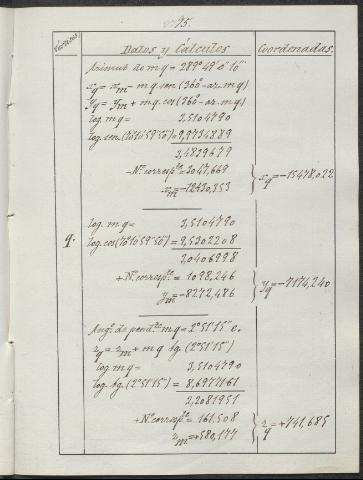 95.
Vértices. Datos y Cálculos Coordenadas.
Azimut de mq = 289°49'0"10
x_q = x_m - mq.sen(360°-az.mq)
y_q = y_m + mq.cos(360°-az.mq)
log. mq = 3,5104790
log. sen(70°10'59"50) = 9,9734889
3,4839679
-N.º corresp.te = 3047,669
x_m = -12430,353
x_q = -15478,022
q.
log. mq = 3,5104790
log. cos(70°10'59"50) = 9,5302208
3,0406998
+N.º corresp.te = 1098,246
y_m = -8272,486
y_q = -7174,240
Ang.º de pend.te mq = 2°51'15" e.
z_q = z_m + mq tg. (2°51'15")
log. mq = 3,5104790
log. tg. (2°51'15") = 8,6977161
2,2081951
+N.º corresp.te = 161,508
z_m = +580,177
z_q = +741,685